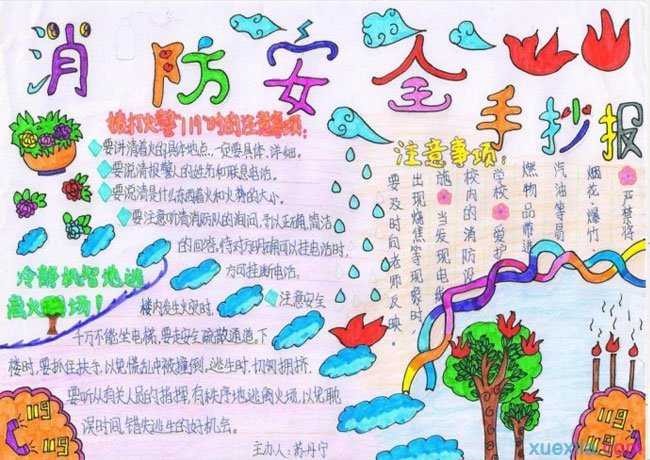 消防安全手抄报
拨打火警"119"时的注意事项:
要讲清着火的具体地点,一定要具体、详细。
要说清报警人的姓名和联系电话。
要说清是什么东西着火和火势的大小。
要注意听清消防队的询问,予以正确,简洁
的回答,待对方明确可以挂电话时,
方可挂断电话。
冷静机智地逃
离火现场!
注意安全
楼内发生火灾时,
千万不能坐电梯,要走安全疏散通道。下
楼时,要抓住扶手,以免慌乱中被撞倒。逃生时,切勿拥挤,
要听从有关人员的指挥,有秩序地逃离火场,以免耽
误时间,错失逃生的好机会。
主办人:苏丹宁
注意事项:
严禁将
烟花、爆竹
汽油等易
燃物品带进
学校 爱护
校内的消防设
施 当发现电器
出现烟焦等现象时,
要及时向老师反映。
119
119
119
119